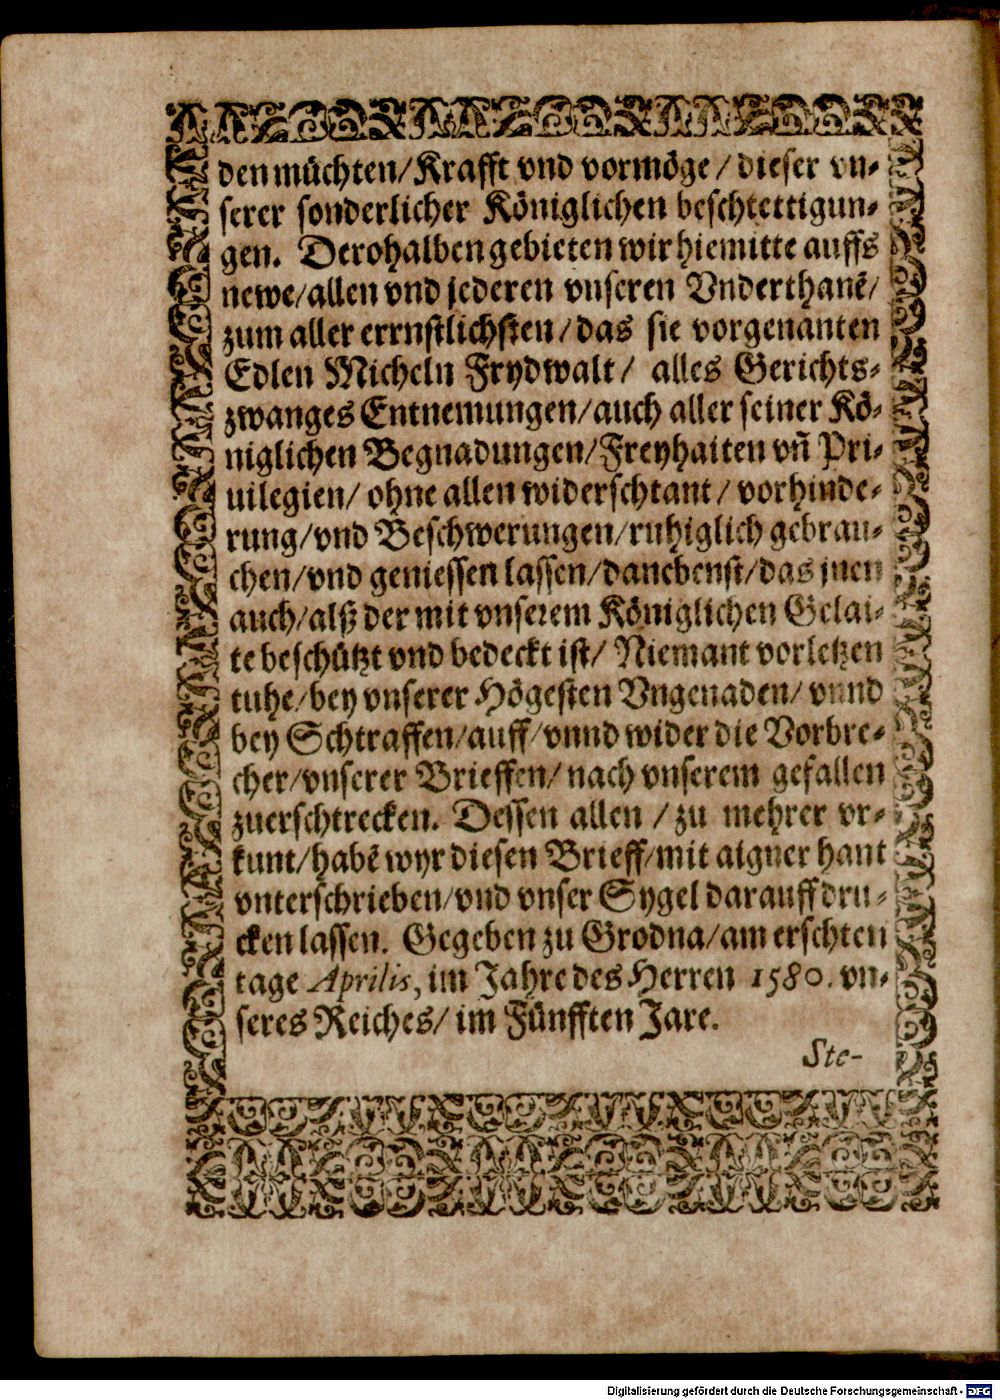 den müchten/Krafft vnd vormöge/dieser vn-
serer sonderlicher Königlichen beschtettigun-
gen. Derohalben gebieten wir hiemitte auffs
newe/allen vnd jederen vnseren Vnderthanē/
zum aller errnstlichsten/das sie vorgenanten
Edlen Micheln Frydwalt/ alles Gerichts-
zwanges Entnemungen/auch aller seiner Kö-
niglichen Begnadungen/Freyhaiten vn̄ Pri-
uilegien/ ohne allen widerschtant/ vorhinde-
rung/vnd Beschwerungen/ruhiglich gebrau-
chen/vnd geniessen lassen/danebenst/das jnen
auch/alß der mit vnserem Königlichen Gelai-
te beschützt vnd bedeckt ist/ Niemant vorletzen
tuhe/bey vnserer Högesten Vngenaden/ vnnd
bey Schtraffen/auff/vnnd wider die Vorbre-
cher/vnserer Brieffen/nach vnserem gefallen
zuerschtrecken. Dessen allen /zu mehrer vr-
kunt/habē wyr diesen Brieff/mit aigner hant
vnterschrieben/vnd vnser Sygel darauff dru-
cken lassen. Gegeben zu Grodna/am erschten
tage Aprilis, im Jahre des Herren 1580. vn-
seres Reiches/ im Fünfften Jare.
Ste-
Digitalisierung gefördert durch die Deutsche Forschungsgemeinschaft - DFG